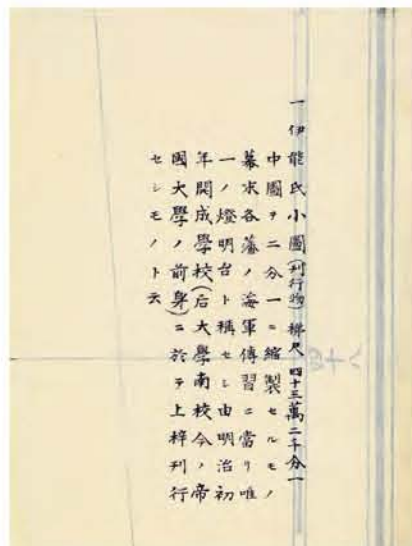 一伊能氏小圖(刊行物)梯尺四十三萬二千分一
中圖ヲ二分一ニ縮製セルモノ
幕末各藩ノ海軍傳習ニ當リ唯
一ノ燈明台ト稱セシ由明治初
年開成學校(后大學南校今ノ帝
國大學ノ前身)ニ於テ上梓刊行
セシモノト云